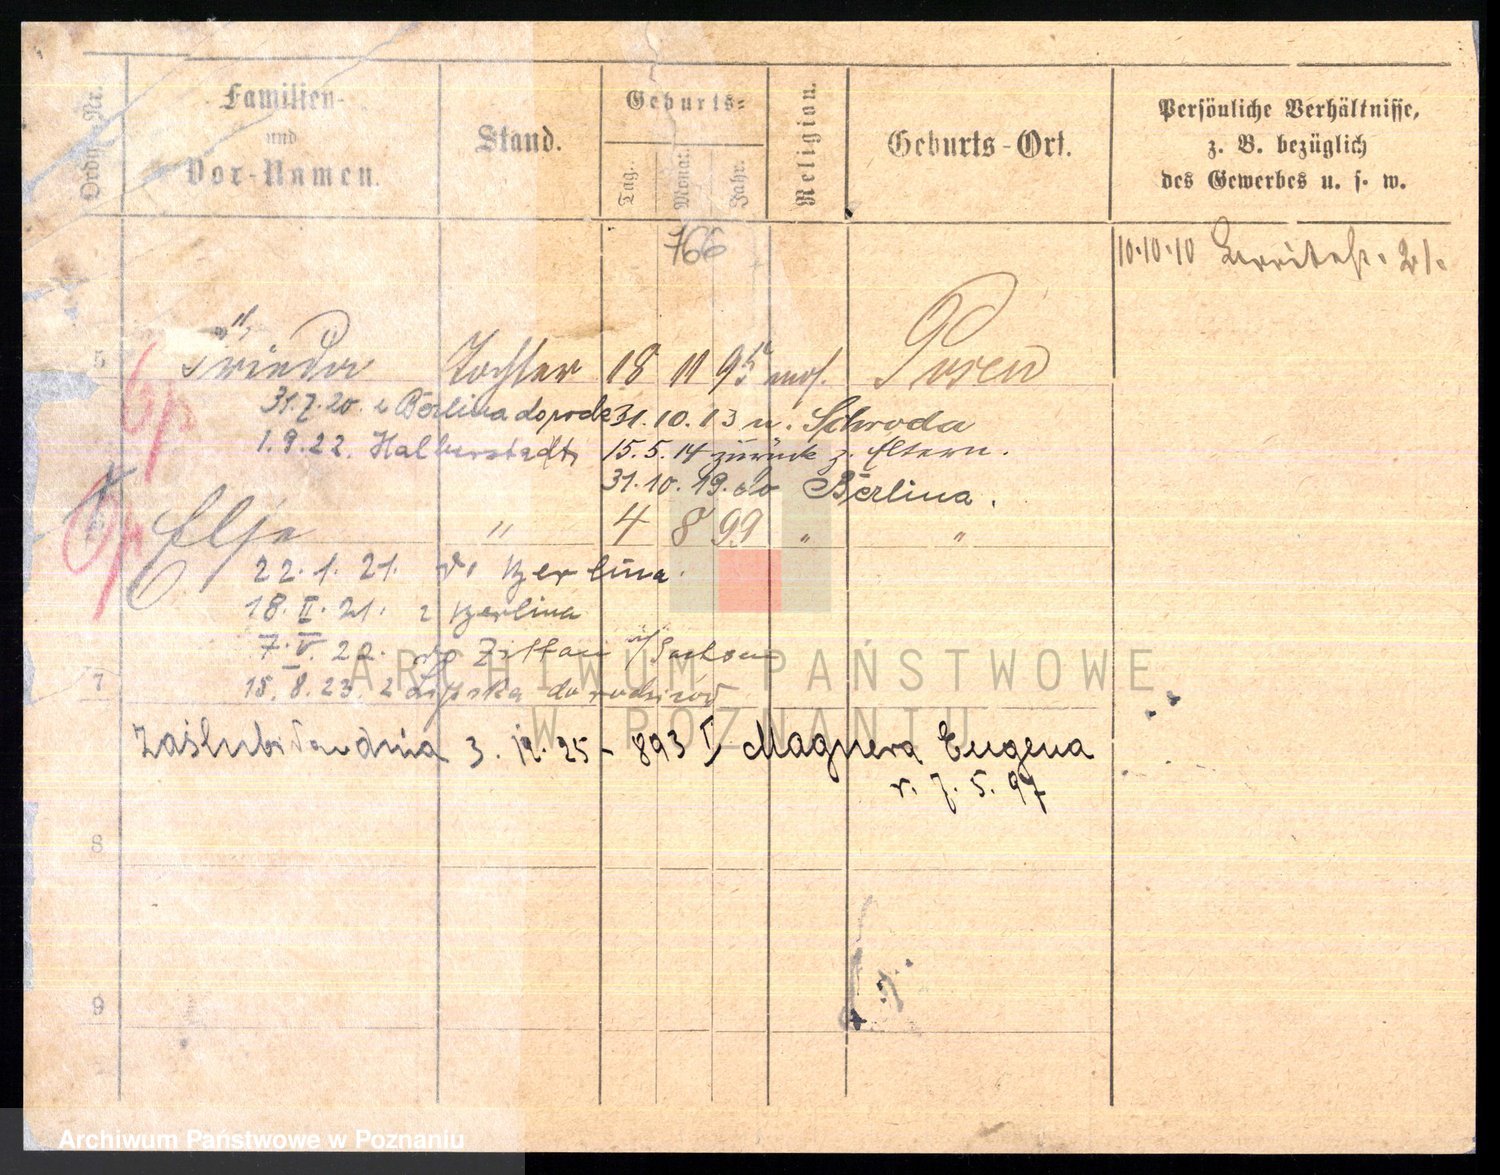 Ordn. Nr. Familien- und Vor-Namen. Stand. Geburts= Tag. Monat. Jahr. Religion. Geburts-Ort. Persönliche Verhältnisse, z. B. bezüglich des Gewerbes u. s. w.
766
10.10.10 21.
5 Frieda Tochter 18 11 95 mos. Posen
31.7.20. z Berlina 31.10.13 n. Schroda
1.9.22. Halberstadt 15.5.14 zurück z. Eltern.
31.10.19. do Berlina.
Else " 4 8 99 " "
22.1.21. do Berlina.
18.II.21. z Berlina
7.V.22. Zittau i/Sachsen
7 15.8.23. z Lipska do rodziców
Zaślubiona dnia 3.12.25 - 893 Magnera Eugena
r. 7.5.97
8
9
ARCHIWUM PAŃSTWOWE
W POZNANIU
Archiwum Państwowe w Poznaniu